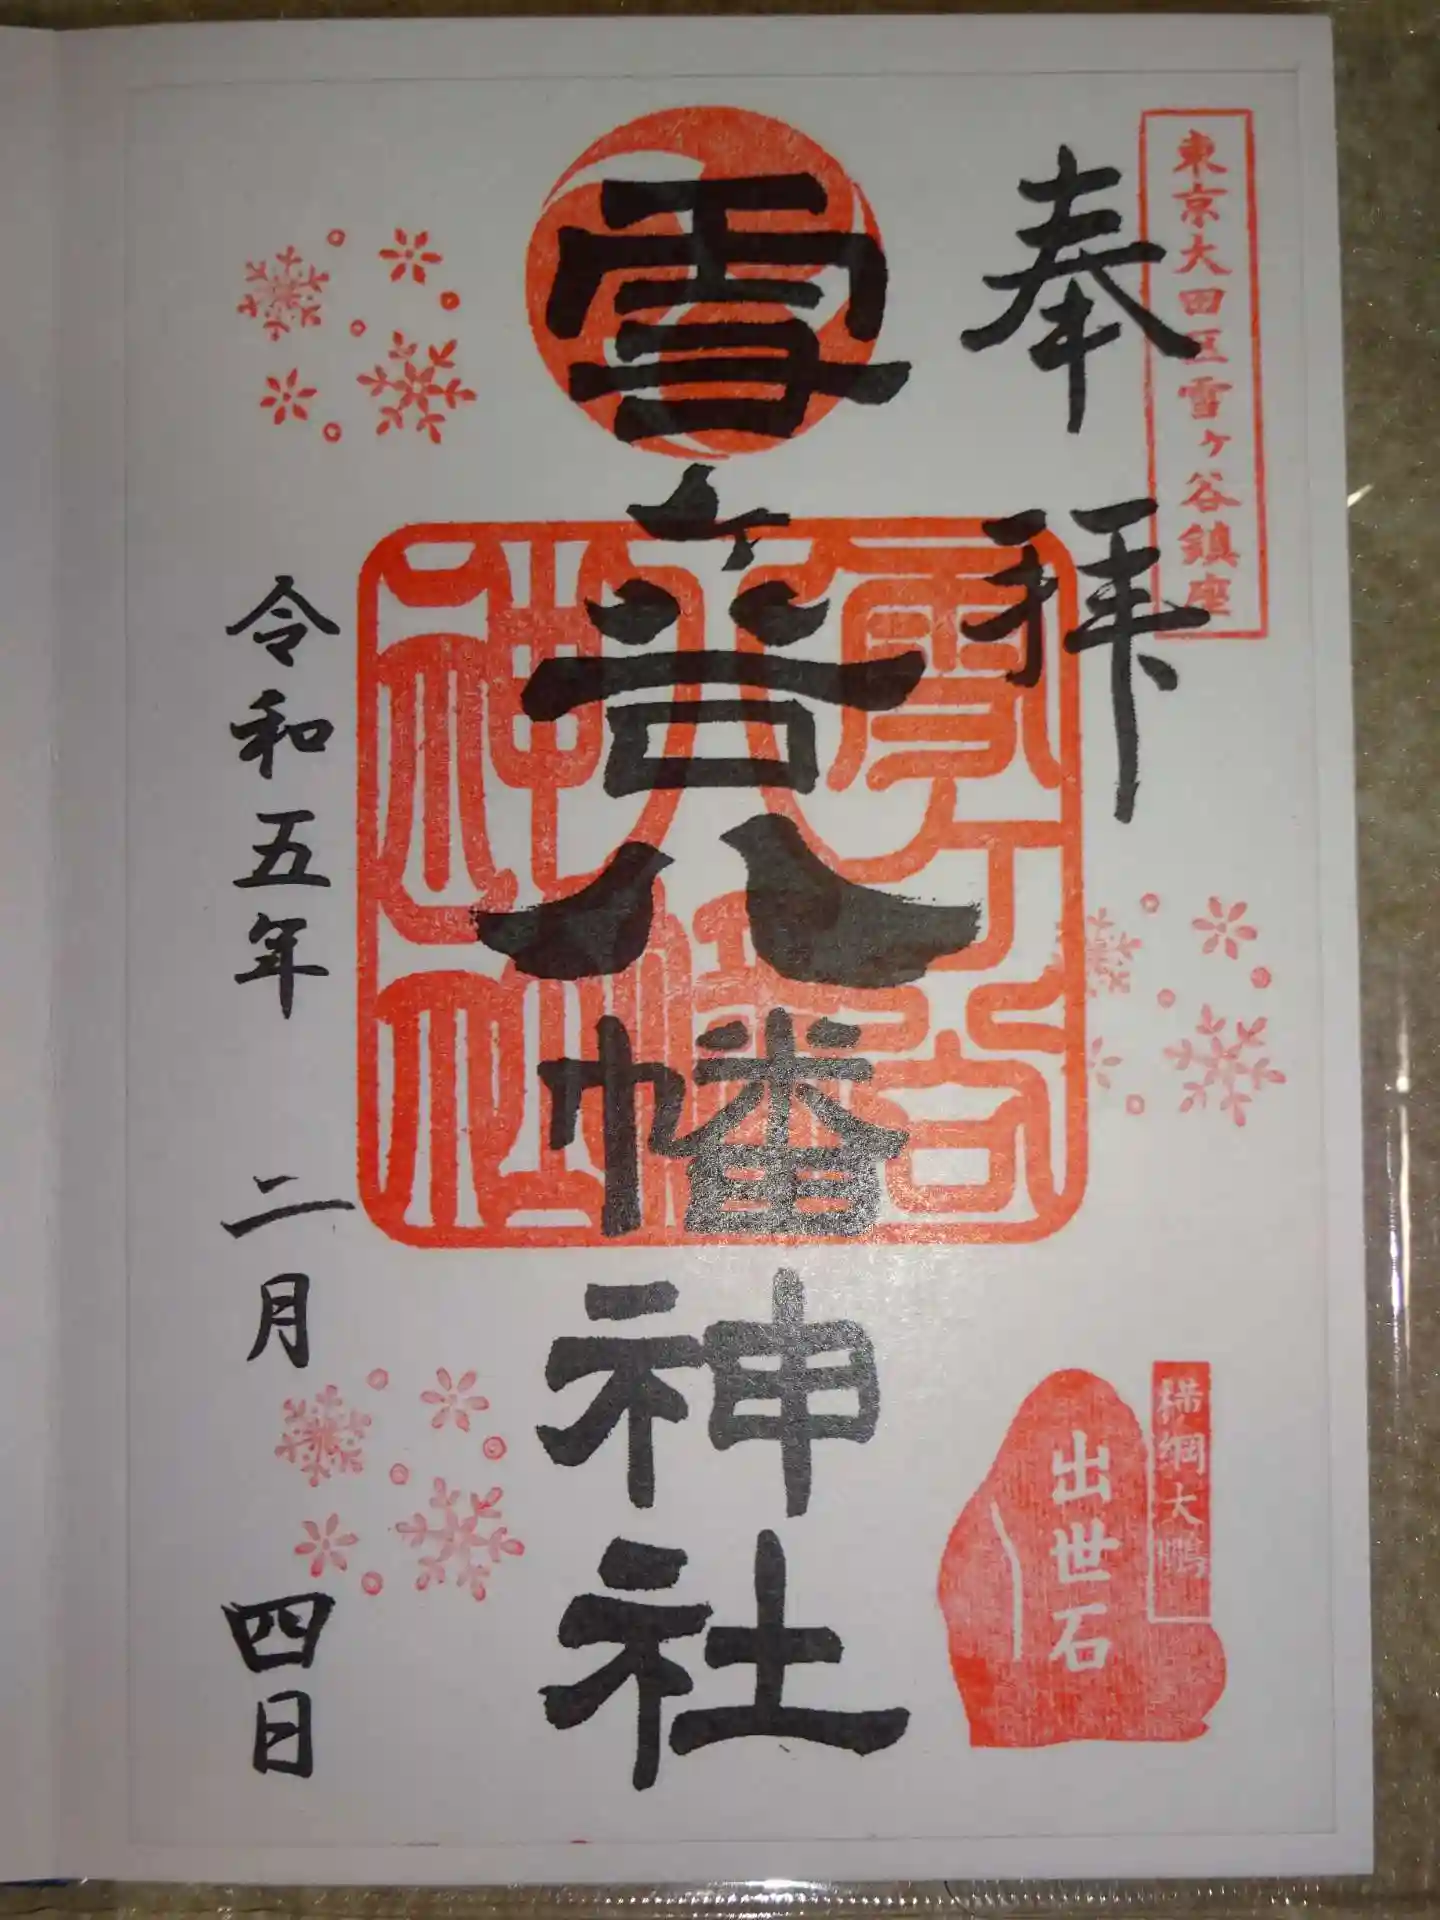 東京大田区雪ヶ谷鎮座
奉拝
横綱大鵬
出世石
雪ヶ谷八幡神社
雪ヶ谷
八幡
神社
令和五年 二月 四日